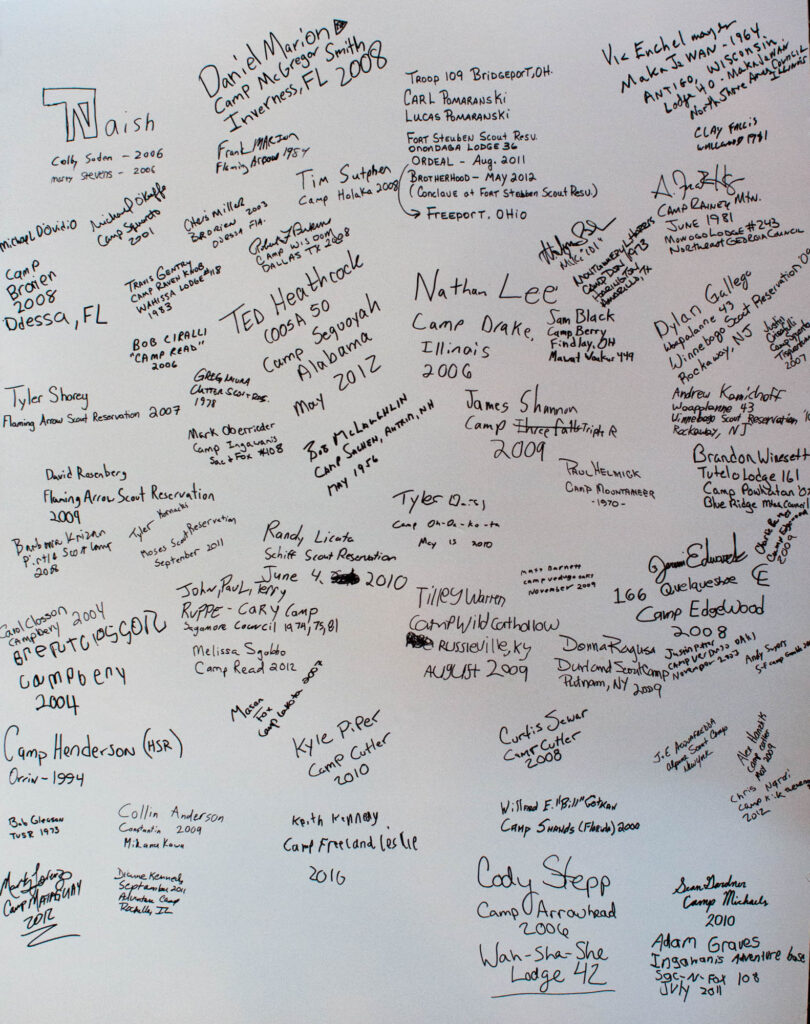 Naish
Colby Sodan - 2006
Marty Stevens - 2006
Daniel Marion
Camp McGregor Smith
Inverness, FL 2008
Frank Marion
Flaming Arrow 1984
Tim Sutphen
Camp Holaka 2008
Troop 109 Bridgeport, OH.
Carl Pomaranski
Lucas Pomaranski
Fort Steuben Scout Resv.
Onondaga Lodge 36
Ordeal - Aug. 2011
Brotherhood - May 2012
(Conclave at Fort Steuben Scout Resv.)
Freeport, Ohio
Vic Enchelmayer
MakaJaWan - 1964
Antigo, Wisconsin
Lodge 40 - MakaJawan
North Shore Area Council
Illinois
Clay Fallis
1981
Camp Rainey Mtn.
June 1981
Mowogo Lodge #243
Northeast Georgia Council
Michael D'Ovidio
Camp
Brorien
2008
Odessa, FL
Michael
Camp
2001
Chris Miller
Brorien 2003
Odessa Fla.
Camp Wisdom
Dallas TX 2008
Travis Gentry
Camp Raven Knob
Wahissa Lodge #118
1983
Bob Ciralli
"Camp Read"
2006
Ted Heathcock
Coosa 50
Camp Sequoyah
Alabama
May 2012
Nathan Lee
Camp Drake,
Illinois
2006
Mike "101"
Montgomery L Harris
Camp Don 1973
Harrington
Amarillo, TX
Sam Black
Camp Berry
Findlay, OH
Mawat 449
Dylan Gallego
Woapalanne 43
Winnebago Scout Reservation
Rockaway, NJ
Justin
2007
Andrew Komichoff
Woapalanne 43
Winnebago Scout Reservation
Rockaway, NJ
Tyler Shorey
Flaming Arrow Scout Reservation 2007
Greg
Cutter Scout Res.
1978
Mark Oberrieder
Camp Ingawanis
Sac & Fox #108
Bob McLaughlin
Camp Sachem, Antrim, NH
May 1956
James Shannon
Camp Three Falls Triple R
2009
Paul Helmick
Camp Mountaineer
-1970-
Brandon Winesett
Tutelo Lodge 161
Camp Powhatan
Blue Ridge Mtns Council
David Rosenberg
Flaming Arrow Scout Reservation
2009
Barbara Krizan
Scott
2008
Tyler
Moses Scout Reservation
September 2011
Tyler
Camp On-Da-Ko-ta
May 2010
Randy Licata
Schiff Scout Reservation
June 4, 2010
Matt Barnett
November 2009
Edwards
166 Quelqueshoe
Camp EdgeWood
2008
Charlie
Camp Edgewood
2009
Carol Closson
Campbery 2004
Brent Closson
Campbery
2004
John, Paul, Terry
Ruppe - Cary Camp
Sagamore Council 1974, 75, 81
Melissa Sgobbo
Camp Read 2012
Mason
Fox
Camp Lakota 2007
Tilley Warren
Camp Wild Cat Hollow
Russleville, Ky
August 2009
Donna Ragusa
Durland Scout Camp
Putnam, NY 2009
Justin
Camp
November 2003
Andy
Camp Henderson (HSR)
Orrin - 1994
Kyle Piper
Camp Cutler
2010
Curtis Sewar
Camp Cutler
2008
J.E. Acquaredda
Alpine Scout Camp
New York
Alex
Camp Cutler
2009
Chris Nardi
Camp
2012
Bob Gleason
TVSR 1973
Collin Anderson
Constantin 2009
Mikanakawa
Keith Kennedy
Camp Freeland Leslie
2010
Wilfred E. "Bill" Cotxan
Camp Shands (Florida) 2000
Marty Lorenzo
Camp Mataguay
2012
Dianne Kennedy
September 2011
Adventure Camp
Rochelle, IL
Cody Stepp
Camp Arrowhead
2006
Wah-Sha-She
Lodge 42
Sean Gardner
Camp Michaels
2010
Adam Graves
Ingawanis Adventure base
Sac-N-Fox 108
July 2011